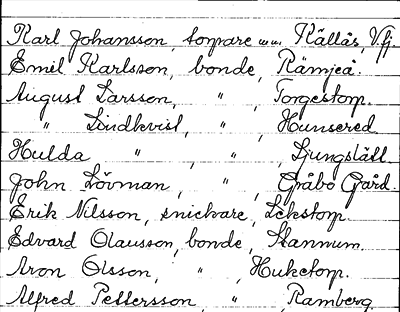 Karl Johansson, torpare " " Kållås, V.fj.
Emil Karlsson, bonde, Rämjeå.
August Larsson, " Torgestorp.
" Lindkvist, " , Hunsered
Hulda " , " , Ljungslätt.
John Lövman, " , Gråbo Gård.
Erik Nilsson, snickare, Lekstorp.
Edvard Olausson, bonde, Stannum.
Aron Olsson, " , Huketorp.
Alfred Pettersson, " , Ramberg.